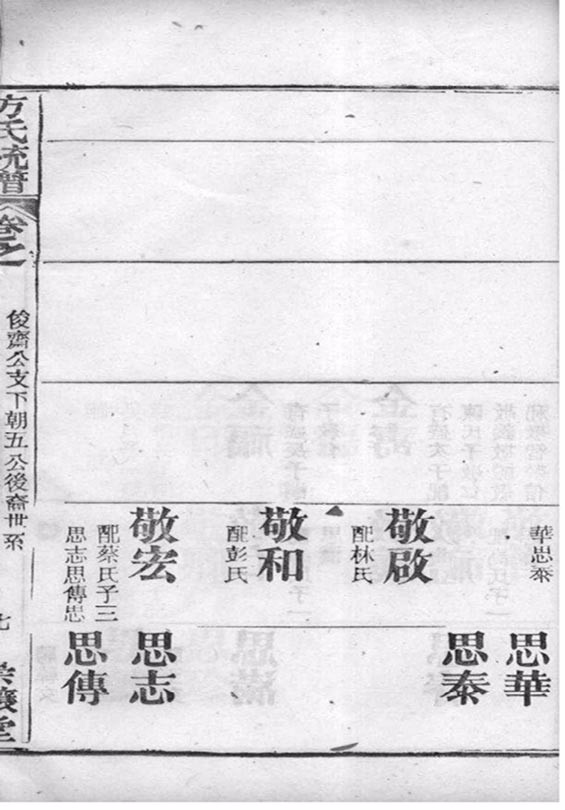 華思泰
敬啟
配林氏
敬和
配彭氏
敬宏
配蔡氏子三
思志思傳思
思華
思泰
思志
思傳
方氏統譜
卷之
俊齋公支下朝五公後裔世系
七